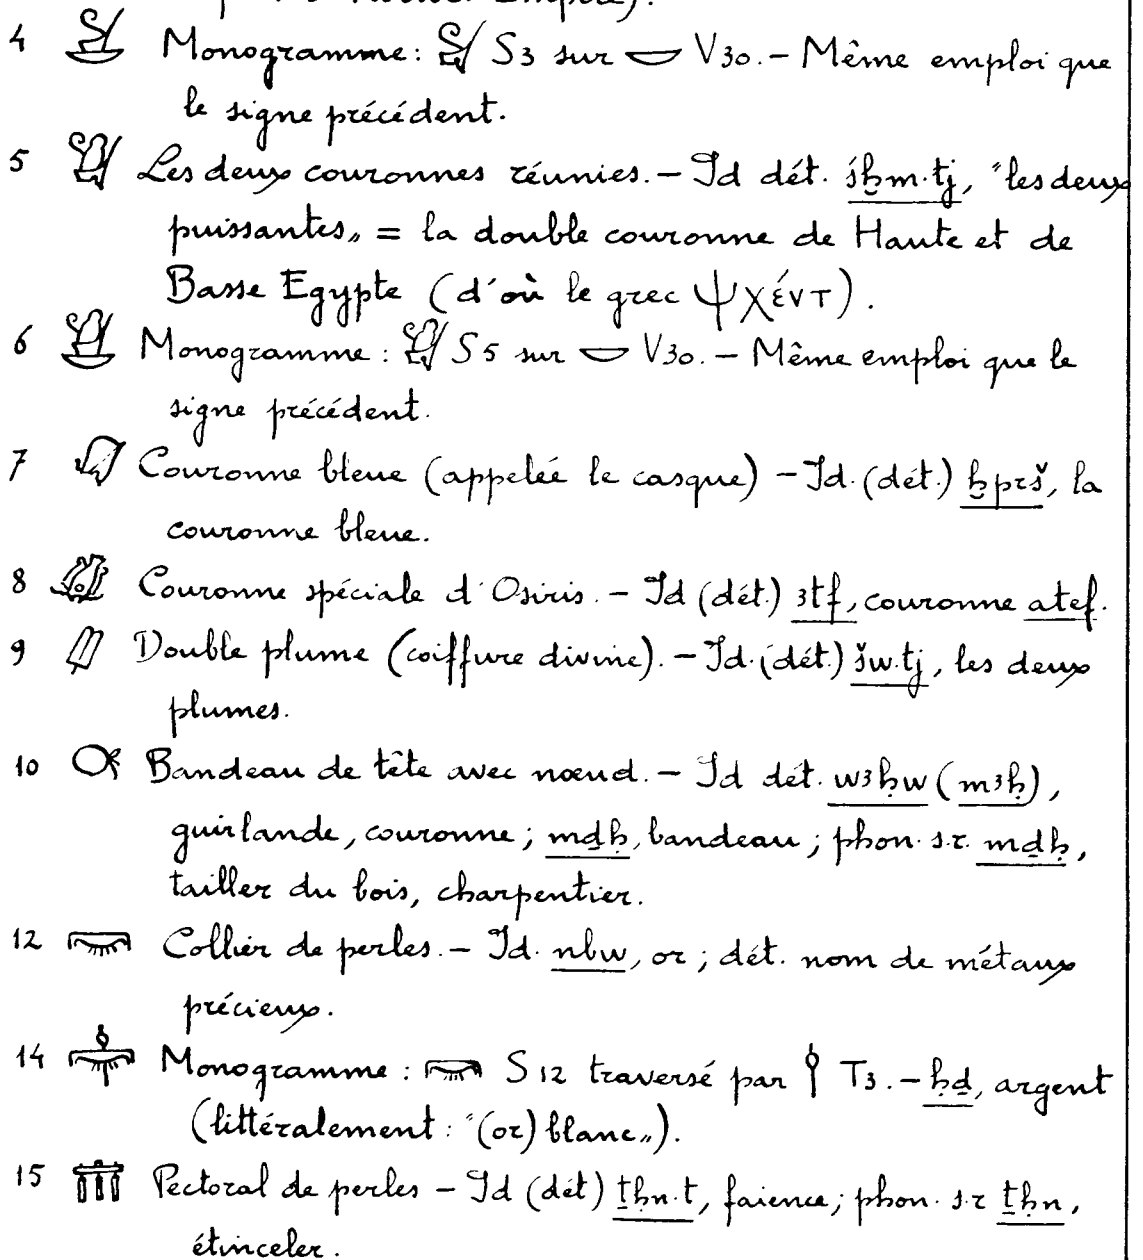 Moyen Empire).
4 𓋕 Monogramme : 𓋔 S3 sur 𓎟 V30. – Même emploi que
le signe précédent.
5 𓋖 Les deux couronnes réunies. – Id dét. śḫm.tj, "les deux
puissantes„ = la double couronne de Haute et de
Basse Egypte (d'où le grec ψχέντ).
6 𓋗 Monogramme : 𓋖 S5 sur 𓎟 V30. – Même emploi que le
signe précédent.
7 𓋙 Couronne bleue (appelée le casque) – Id. (dét.) ḫprš, la
couronne bleue.
8 𓋚 Couronne spéciale d'Osiris. – Id (dét.) ꜣtf, couronne atef.
9 𓋛 Double plume (coiffure divine). – Id. (dét.) šw.tj, les deux
plumes.
10 𓋜 Bandeau de tête avec nœud. – Id dét. wꜣḥw (mꜣḥ),
guirlande, couronne ; mḏḥ, bandeau ; phon. s.r. mḏḥ,
tailler du bois, charpentier.
12 𓋞 Collier de perles. – Id. nbw, or ; dét. nom de métaux
précieux.
14 𓋠 Monogramme : 𓋞 S12 traversé par 𓌉 T3. – ḥḏ, argent
(littéralement : "(or) blanc„).
15 𓋣 Pectoral de perles – Id (dét) ṯḥn.t, faïence ; phon. s.r ṯḥn,
étinceler.